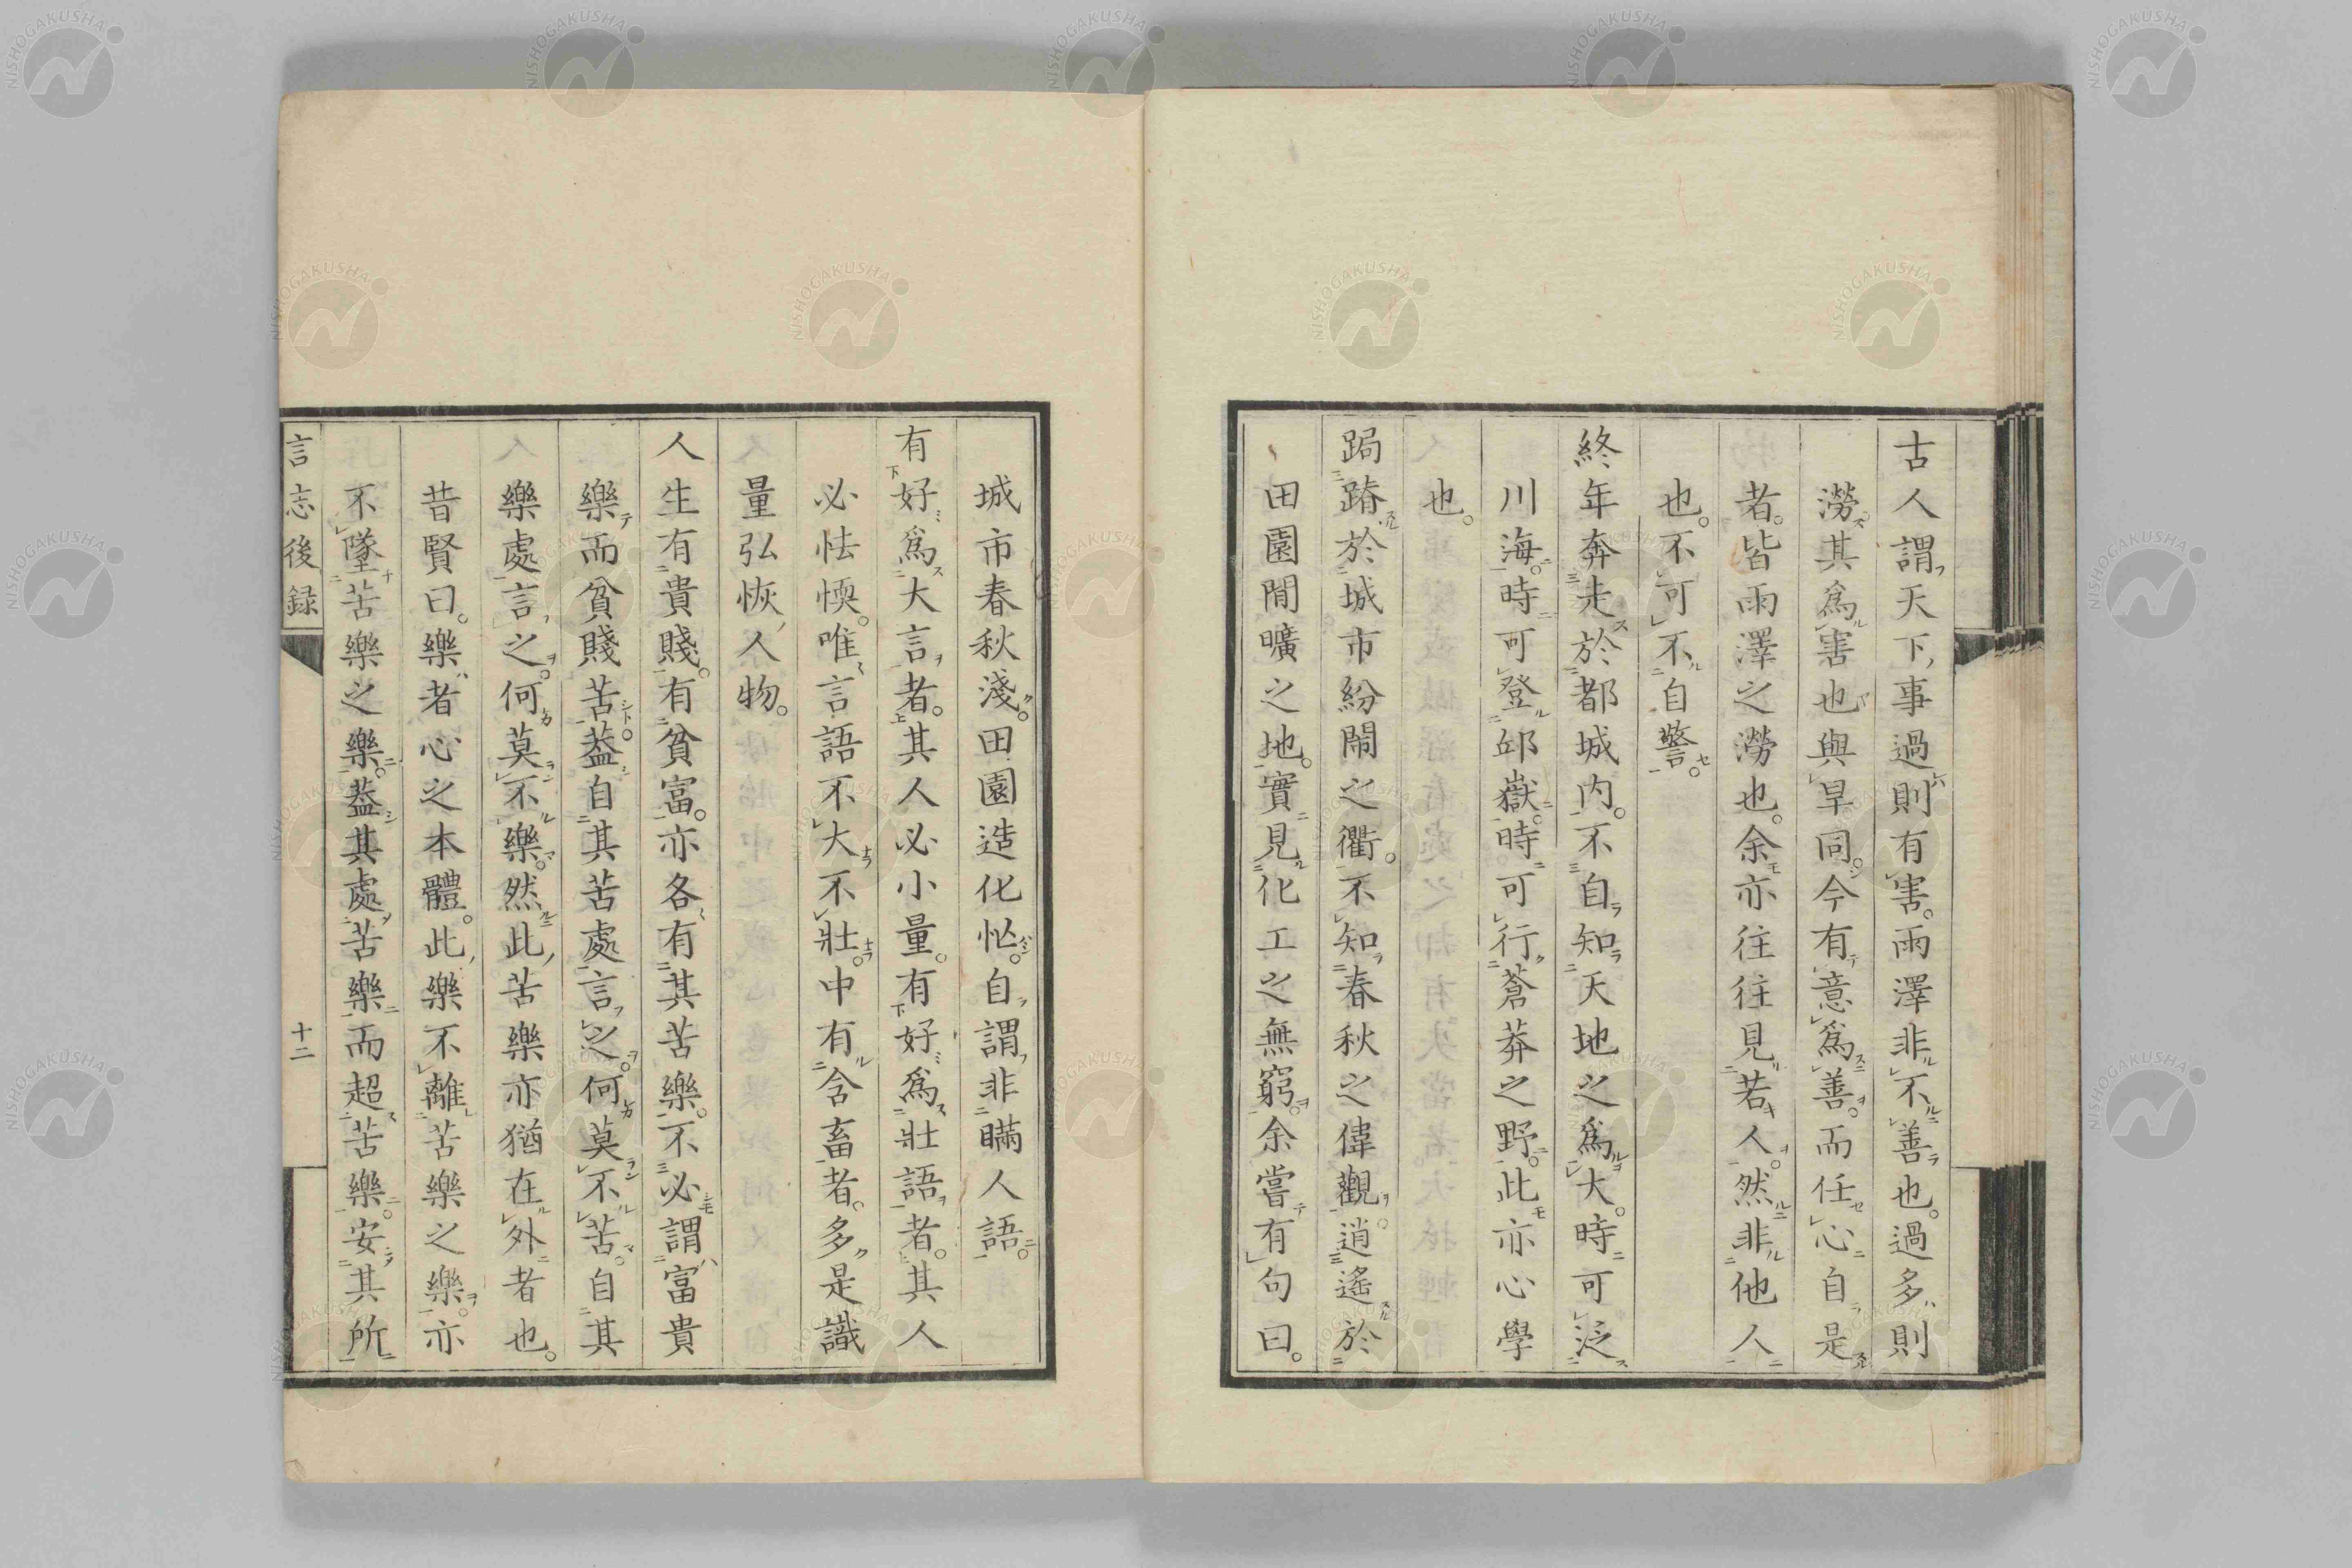 古人謂天下事過則有害。雨澤非不善也。過多則
澇。其爲害也與旱同。今有意爲善。而任心自是
者。皆雨澤之澇也。余亦往往見若人。然非他人
也。不可不自警。
終年奔走於都城内。不自知天地之爲大。時可泛
川海。時可登邱嶽。時可行蒼莽之野。此亦心學
也。
跼蹐於城市紛鬧之衢。不知春秋之偉觀。逍遙於
田園閒曠之地。實見化工之無窮。余嘗有句曰。
城市春秋淺。田園造化忙。自謂非瞞人語。
有好爲大言者。其人必小量。有好爲壯語者。其人
必怯愞。唯言語不大不壯。中有含畜者。多是識
量弘恢人物。
人生有貴賤。有貧富。亦各有其苦樂。不必謂富貴
樂而貧賤苦。蓋自其苦處言之。何莫不苦。自其
樂處言之。何莫不樂。然此苦樂亦猶在外者也。
昔賢曰。樂者心之本體。此樂不離苦樂之樂。亦
不墜苦樂之樂。蓋其處苦樂而超苦樂。安其所
言志後録
十二
NISHOGAKUSHA